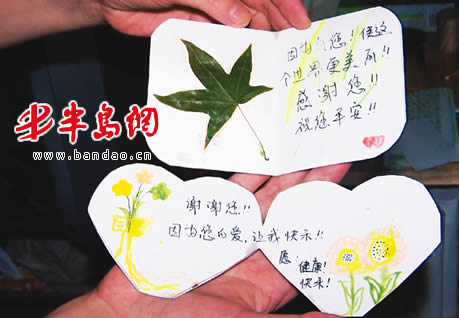 因为有您!使这
个世界更美丽!!
感谢您!!
祝您平安!!
半岛網
www.bandao.cn
谢谢您!!
因为您的爱,让我快乐!!
愿:健康!
快乐!